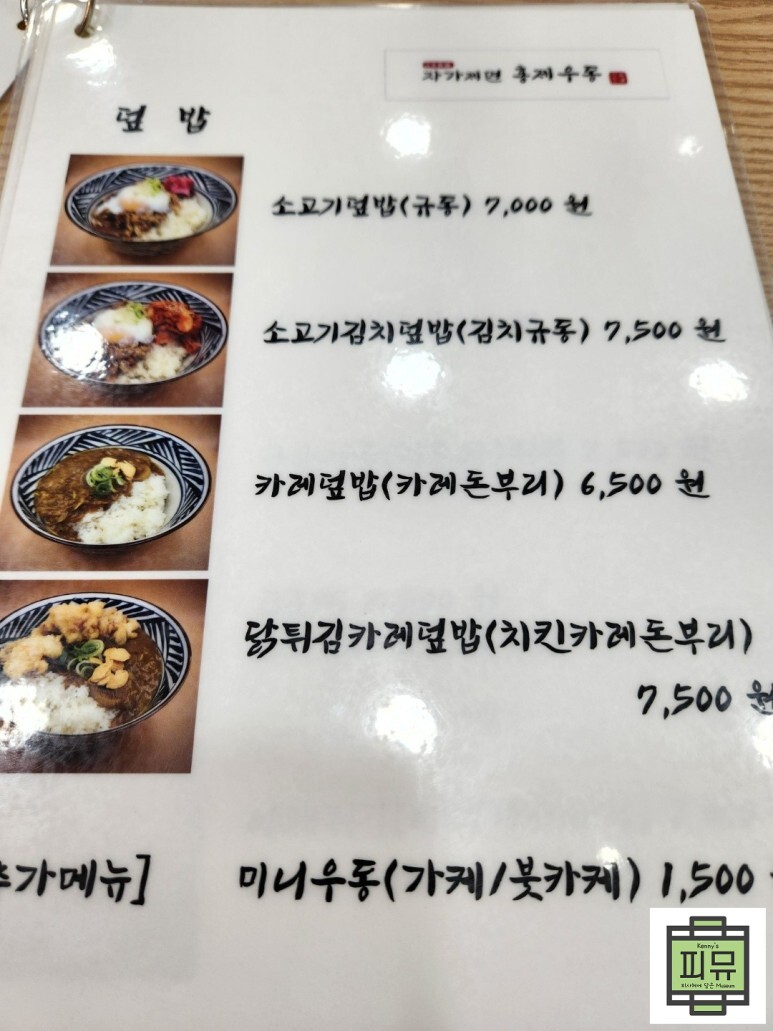 자가제면 홍제우동
덮 밥
소고기덮밥(규동) 7,000 원
소고기김치덮밥(김치규동) 7,500 원
카레덮밥(카레돈부리) 6,500 원
닭튀김카레덮밥(치킨카레돈부리)
7,500 원
추가메뉴]
미니우동(가케/붓카케) 1,500
Kenny's
피뮤